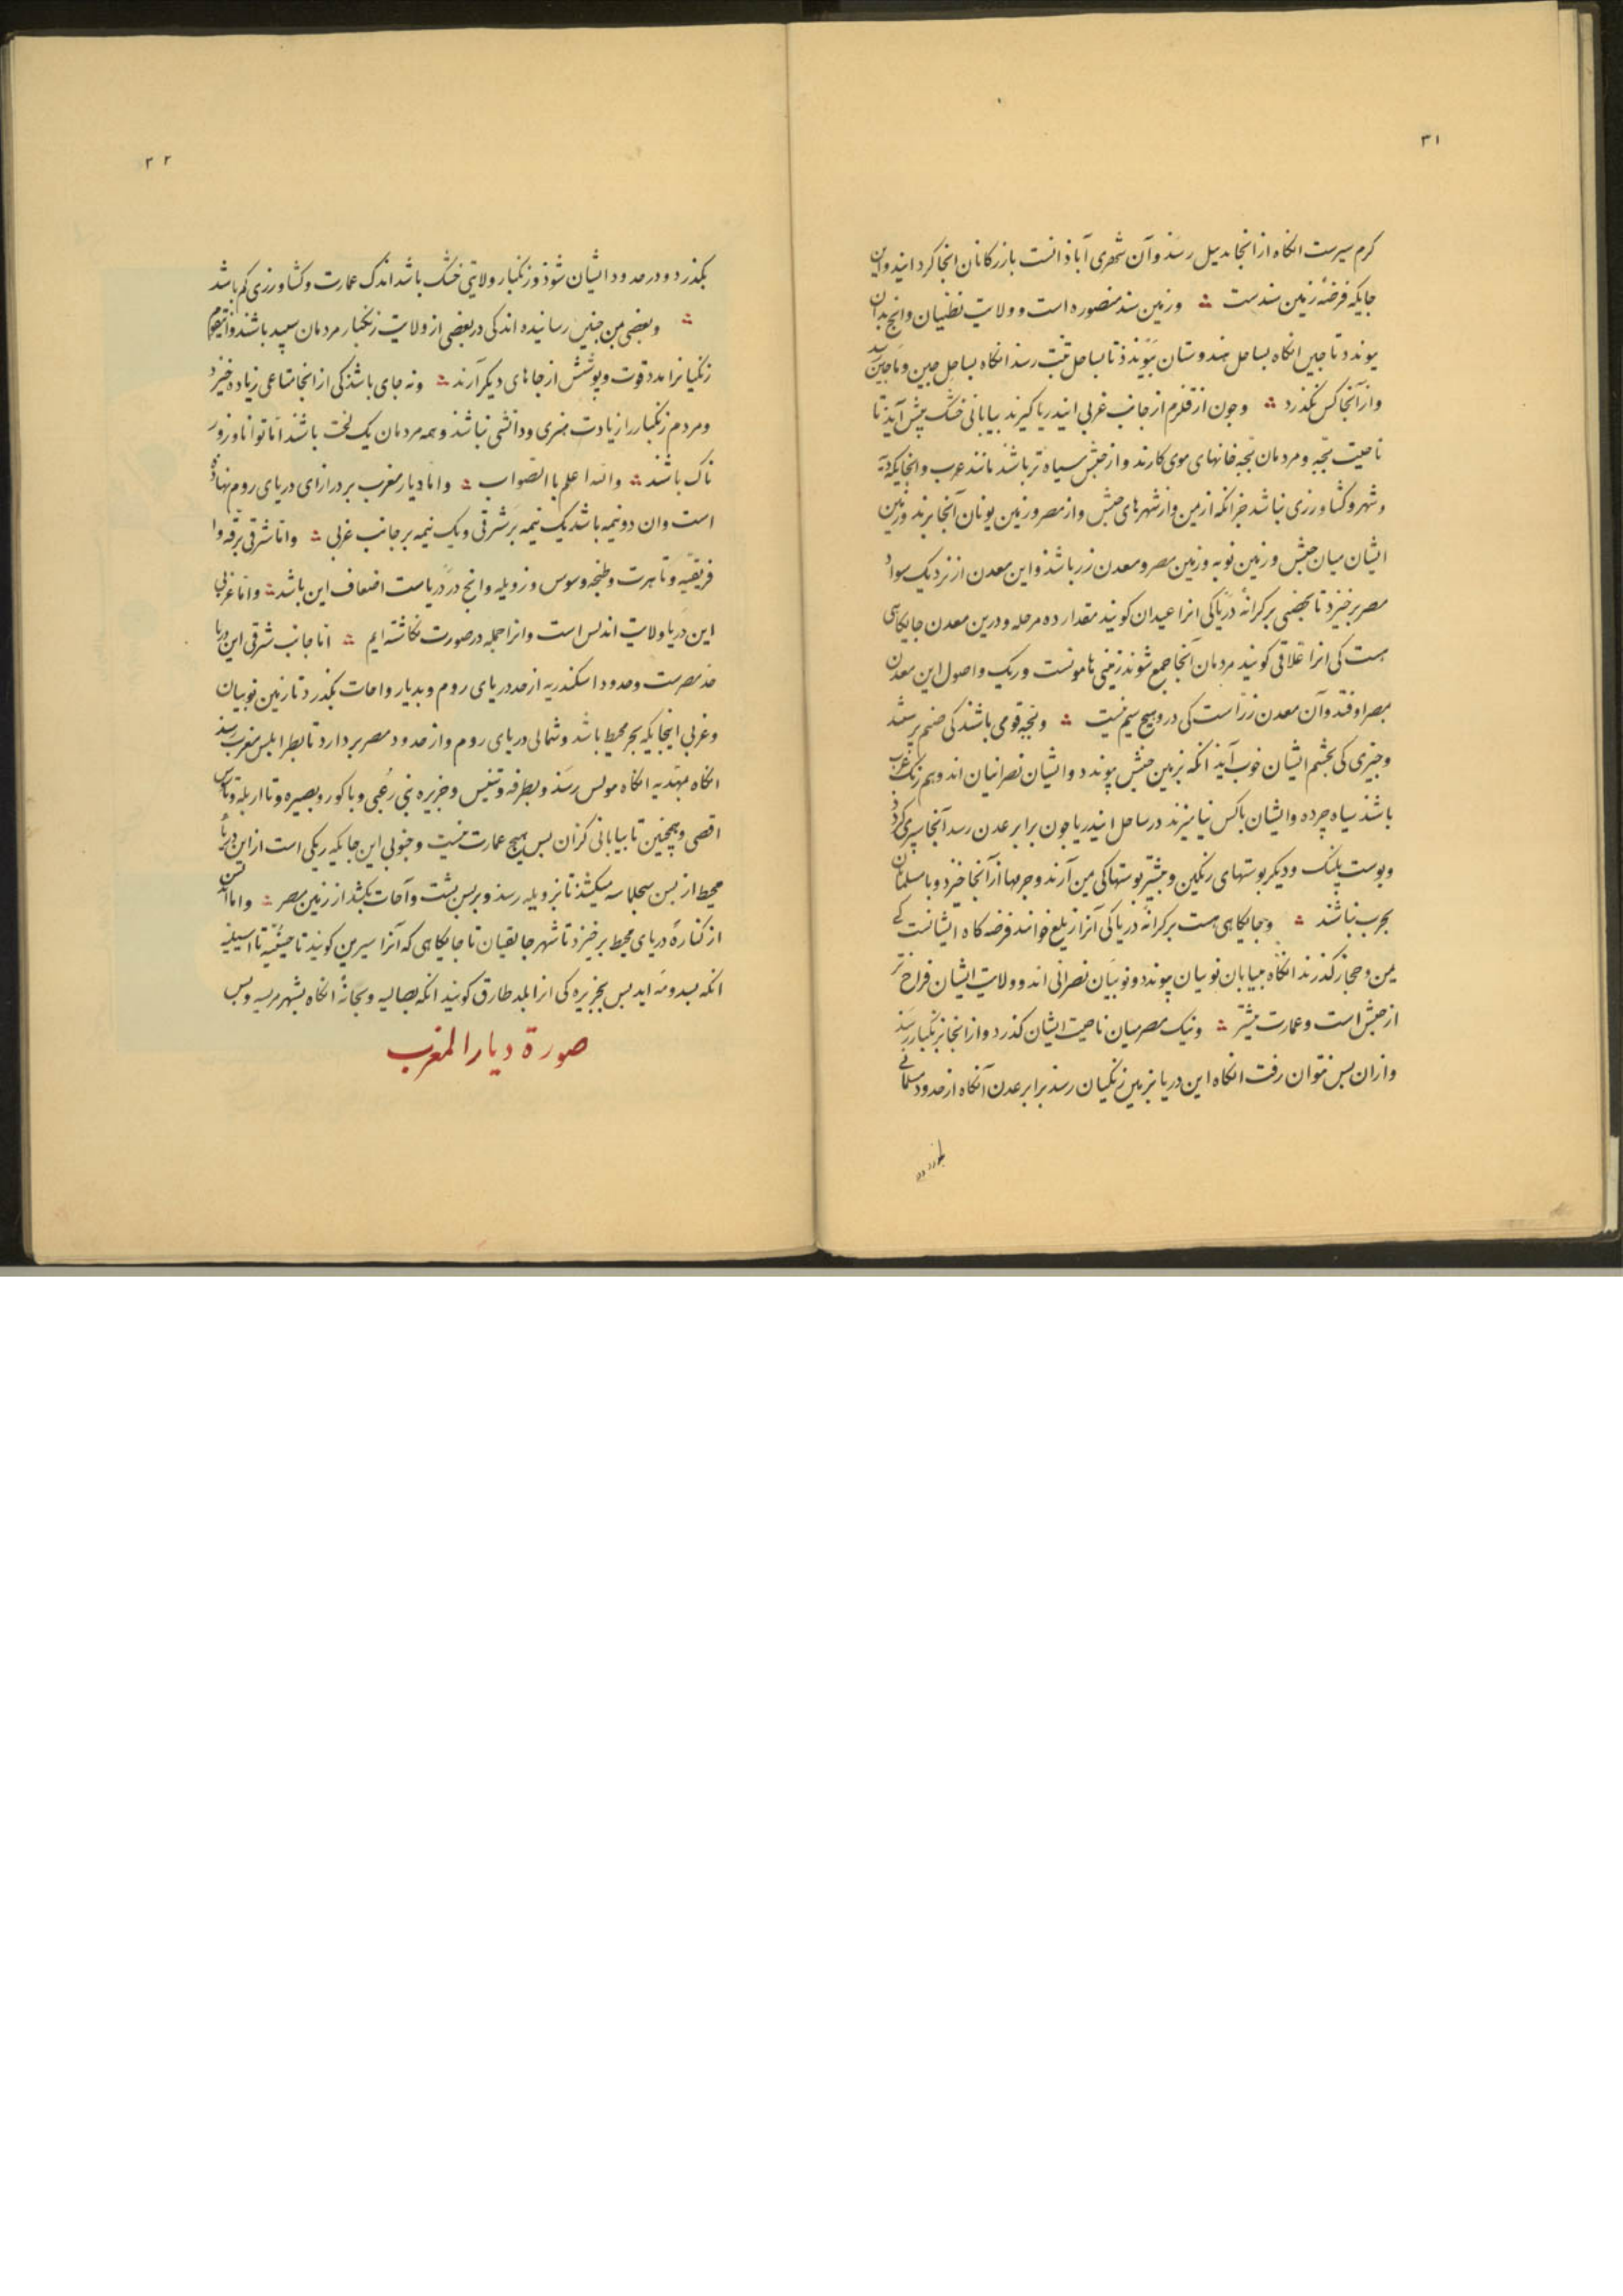 ۳۱
کرم سیرست انکاه از انجا بدیل رسذ وآن شهری آباذانست بازرکانان انجا کرد ایند واین
جایکه فرضهٔ زمین سندست ؞ وزمین سند منصوره است و ولایت نطنیان وانچ بدان
پیوندد تا چین انکاه بساحل هندوستان بپیوندذ تا بساحل تبت رسذ انکاه بساحل چین وماچین رسد
واز آنجا کس نکذرد ؞ وچون از قلزم از جانب غربی ایندریا کیرند بیابانی خشک پیش آیذ تا
ناحیت بجه ومردمان بجه خانهای موی کارند واز حبش سیاه تر باشند مانند عرب وانجایکه ده
وشهر وکشاورزی نباشد جز انکه از یمن واز شهرهای حبش واز مصر وزمین یونان آنجا برند وزمین
ایشان میان حبش وزمین نوبه وزمین مصر ومعدن زر باشذ واین معدن از نزدیک سواد
مصر برخیزد تا بحضی برکرانهٔ دریا کی انرا عیدان کویند مقدار ده مرحله ودرین معدن جایکاهی
هست کی انرا علاقی کویند مردمان آنجا جمع شوند زمینی هامونست وریک واصول این معدن
بمصر اوفتد وآن معدن زرّاست کی درو هیچ سیم نیست ؞ وبجه قومی باشند کی صنم پرستند
وچیزی کی بچشم ایشان خوب آیذ انکه بزمین حبش پیوندد وایشان نصرانیان اند وهم رنک عرب
باشند سیاه چرده وایشان باکس نیامیزند در ساحل ایندریا چون برابر عدن رسد آنجا سپری کردذ
وپوست پلنک ودیکر پوستهای رنکین وبیشتر پوستها کی یمن آرند وچرمها از آنجا خیزد وبا مسلمانان
بحرب نباشند ؞ وجایکاهی هست برکرانهٔ دریا کی آنرا زیلع خوانند فرضه کاه ایشانست کی
یمن وحجاز کذرند انکاه ببیابان نوبیان پیوندد ونوبیان نصرانی اند و ولایت ایشان فراخ تر
از حبش است وعمارت بیشتر ؞ ونیک مصر میان ناحیت ایشان کذرد واز انجا بزنکبار رسد
وازان پس نتوان رفت انکاه این دریا بزمین زنکیان رسذ برابر عدن آنکاه از حدود مسلمانی
۳۲
بکذرد ودر حدود ایشان شوذ وزنکبار ولایتی خشک باشد اندک عمارت وکشاورزی کم باشد
؞ وبعضی بمن چنین رسانیده اند کی در بعضی از ولایت زنکبار مردمان سپید باشند
زنکیانرا مدد قوت وپوشش از جاهای دیکر آرند ؞ ونه جای باشذ کی از انجا متاعی زیاده خیزد
ومردم زنکبار را زیادت هنری ودانشی نباشذ وهمه مردمان یک لخت باشند امّا توانا وزور
ناک باشند ؞ والله اعلم باالصّواب ؞ وامّا دیار مغرب بر درازای دریای روم نهاذه
است وان دو نیمه باشد یک نیمه بَر شرقی ویک نیمه بر جانب غربی ؞ وامّا شرقی برقه وا
فریقیه وتاهرت وطنجه وسوس وزویله وانج در دریاست اضعاف این باشد ؞ وامّا غربی
این دریا ولایت اندلس است وانرا جمله در صورت نکاشته ایم ؞ امّا جانب شرقی این دریا
حدّ مصرست وحدود اسکندریه از حد دریای روم وبدیار واحات بکذرد تا زمین نوبیان
وغربی اینجایکه بحر محیط باشد وشمالی دریای روم واز حدود مصر بردارد تا بطرابلس مغرب رسذ
انکاه مهدیه انکاه بونس رسَذ وبطرفه وتنیس وجزیره بنی رعبی وباکور وبصیره وتا اریله وتا سوس
اقصی وهمچنین تا بیابانی کزان پس هیچ عمارت نیست وجنوبی این جایکه ریکی است از این دریا
محیط از پس سجلماسه میکشذ تا بزویله رسذ وبر پس پشت واحات بکشد از زمین مصر ؞ وامّا اندلس
از کنارهٔ دریای محیط برخیزد تا شهر جابقیان تا جایکاهی که آنرا سیرین کویند تا حیشمیّه تا اسبیلیه
انکه بسدومه اید پس بجزیره کی انرا بلد طارق کویند انکه بصالیه وبجانهٔ انکاه بشهر مریسیه وپس
صورة دیار المغرب